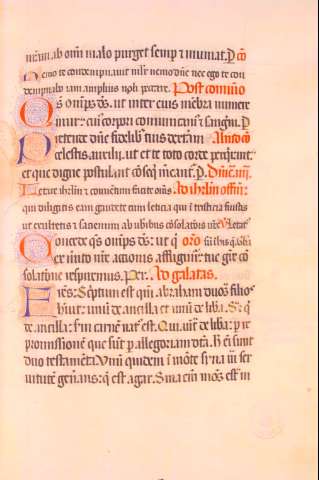 nerari ab omi malo purget semp ⁊ muniat. P. cō
Nemo te condempnauit mlr nemo dñe nec ego te con
dempnabo iam amplius noli peccare. Post comunio
Qs oīnips ds. ut inter eius mēbra numere
mur: cuius corpori comunicam⁊ sanguī. P.
Pretende dñe fidelib tuis dexterā
celestis auxilii. ut et te toto corde perqirant:
et que digne postulant cōseq mcant. P. Dñica. iiii.
Letare ihrlm ⁊ conuentum facite om̄s. Ad ihrlm offm:
qui diligitis eam gaudete cum leticia qui ī tristicia fuistis
ut exultetis ⁊ saciemini ab ubibus cōsolatōis
Concede qs oīnips ds: ut q oro
ex merito nr̄e actionis affligim: tue gr̄e cō
solatione respiremus. Per. Ad galatas.
Fres: Scptum est qm abraham duos filios
habuit: unū de ancilla et unū de liba. S; q
de ancilla: scdm carnē nat est. Qui aut de liba: p re
promissionē que sunt p allegoriam dcā. H eī sunt
duo testamēta. Vnū quidem ī mōte syna ī ser
uitutē gen̄ans: q est agar. Sina eīm mōs est in